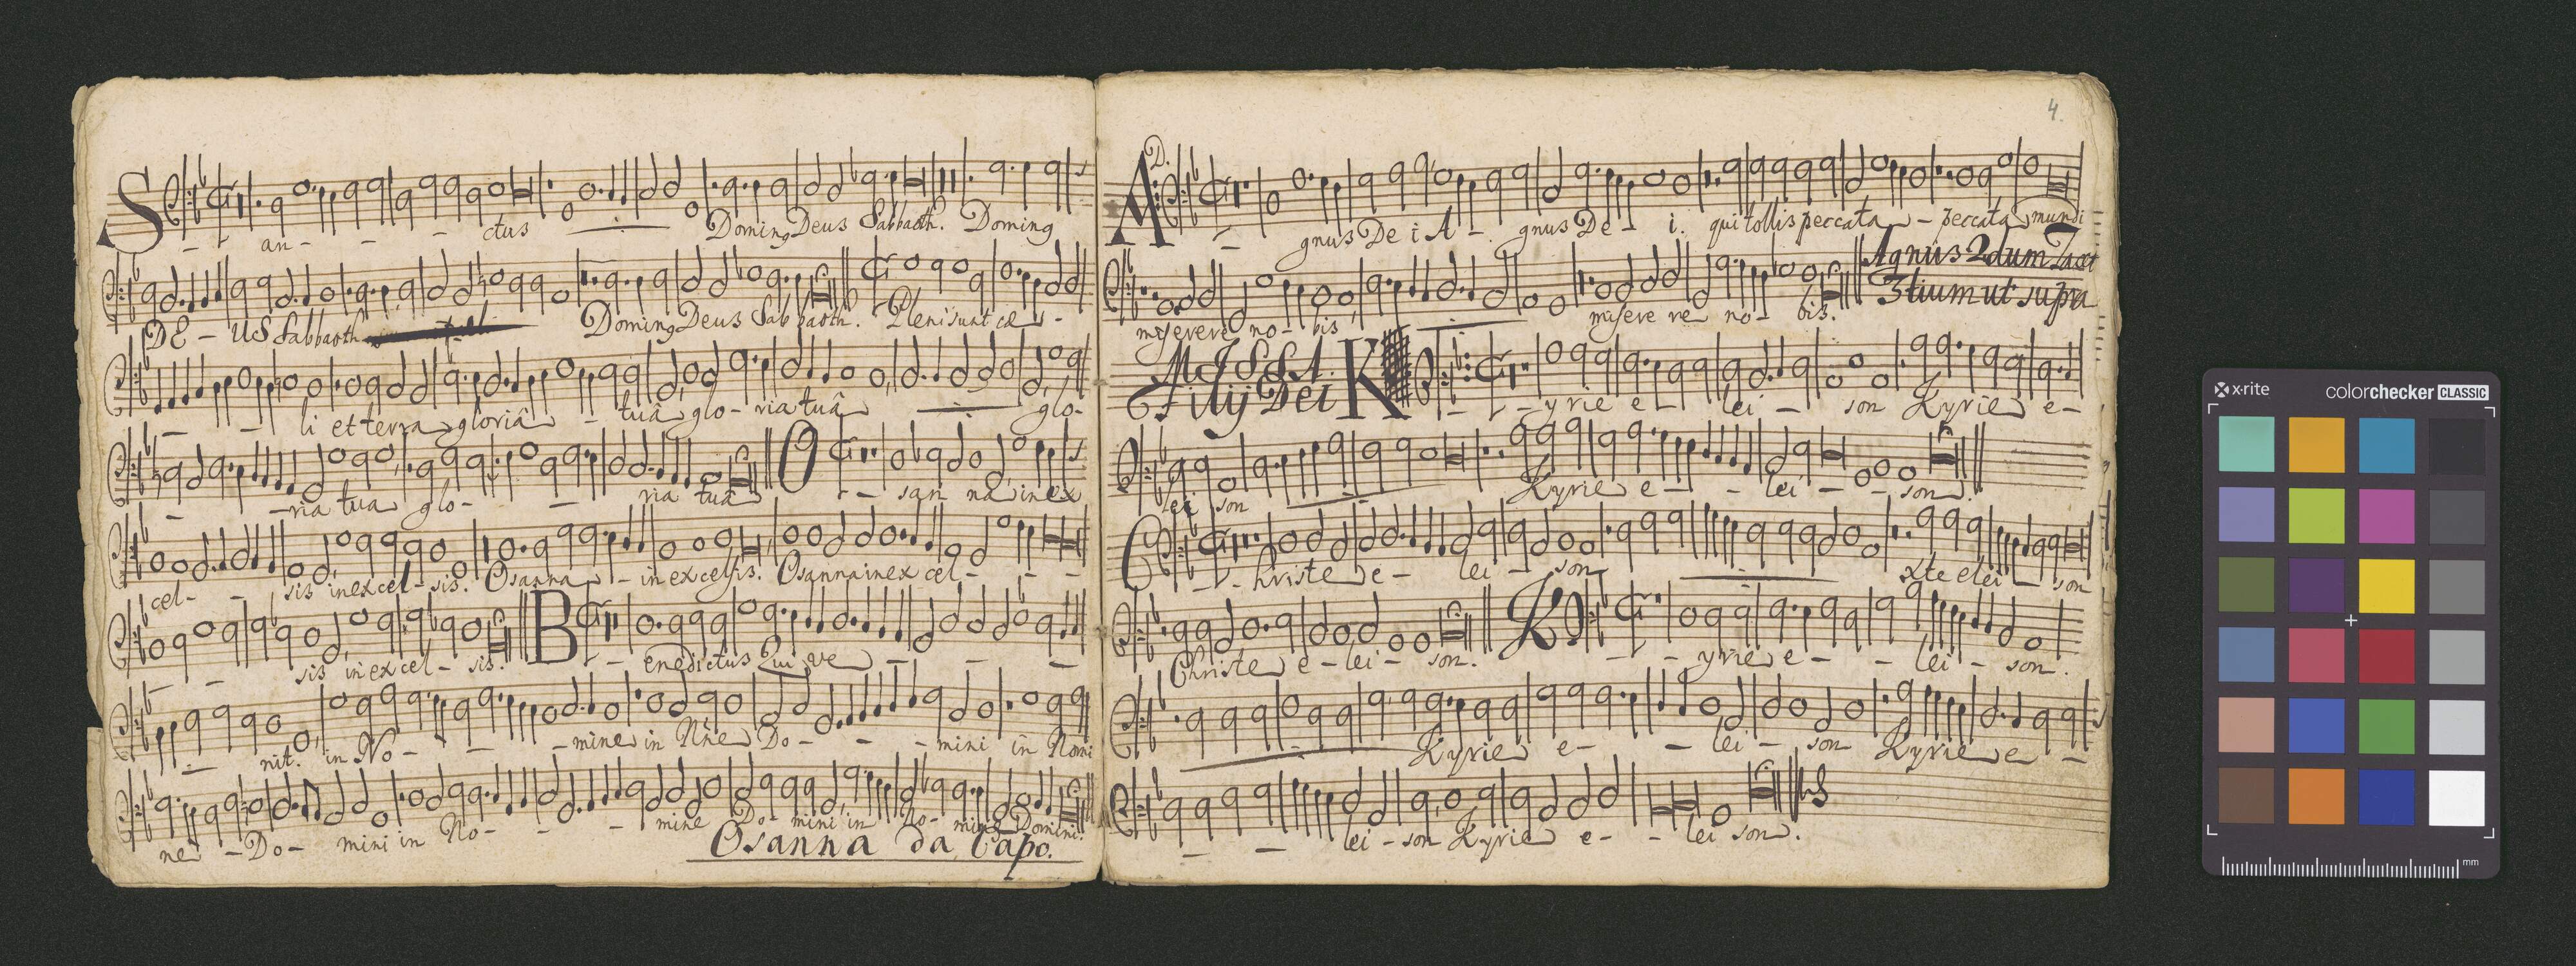 San - - - ctus Doming Deus Sabbaoth. Doming
DE - US Sabbaoth Doming Deus Sabbaoth. Pleni sunt cæ -
- - li et terra gloriâ - tuâ glo - ria tuâ glo -
- - ria tua glo - - ria tuâ O - san na in ex
cel - - sis in excel - sis. Osanna - in excelsis. Osanna in excel - - -
- - sis in excel - sis. B - enedictus Qui ve - - -
- nit. in No - - - mine in Nñe Do - - - mini in Nomi
ne - Do - mini in No - - - mine Do - mini in No - ming Domini.
Osanna da Capo.
4.
D.
A - gnus De i A - gnus De - i. qui tollis peccata - peccata mundi
miserere no - bis, misere re no - bis.
Agnus 2dum Tacet
3tium ut supra
MISSA.
Filij Dei
K - - yrie e - lei - son Kyrie e -
lei son Kyrie e - - lei - - son.
C - - hriste e - lei - son Xte elei - - son
Christe e - lei - son.
K - - yrie e - - lei - son.
Kyrie e - - lei - son Kyrie e -
- - lei - son Kyrie e - - lei son.
x-rite
colorchecker CLASSIC
mm